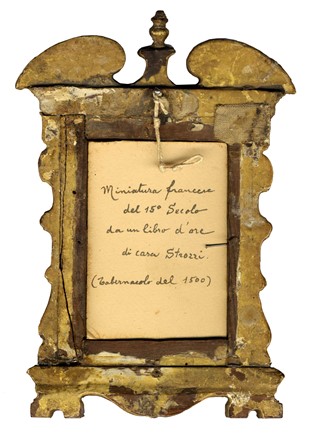 Miniatura francese
del 15º Secolo
da un libro d'ore
di casa Strozzi.
(Tabernacolo del 1500)